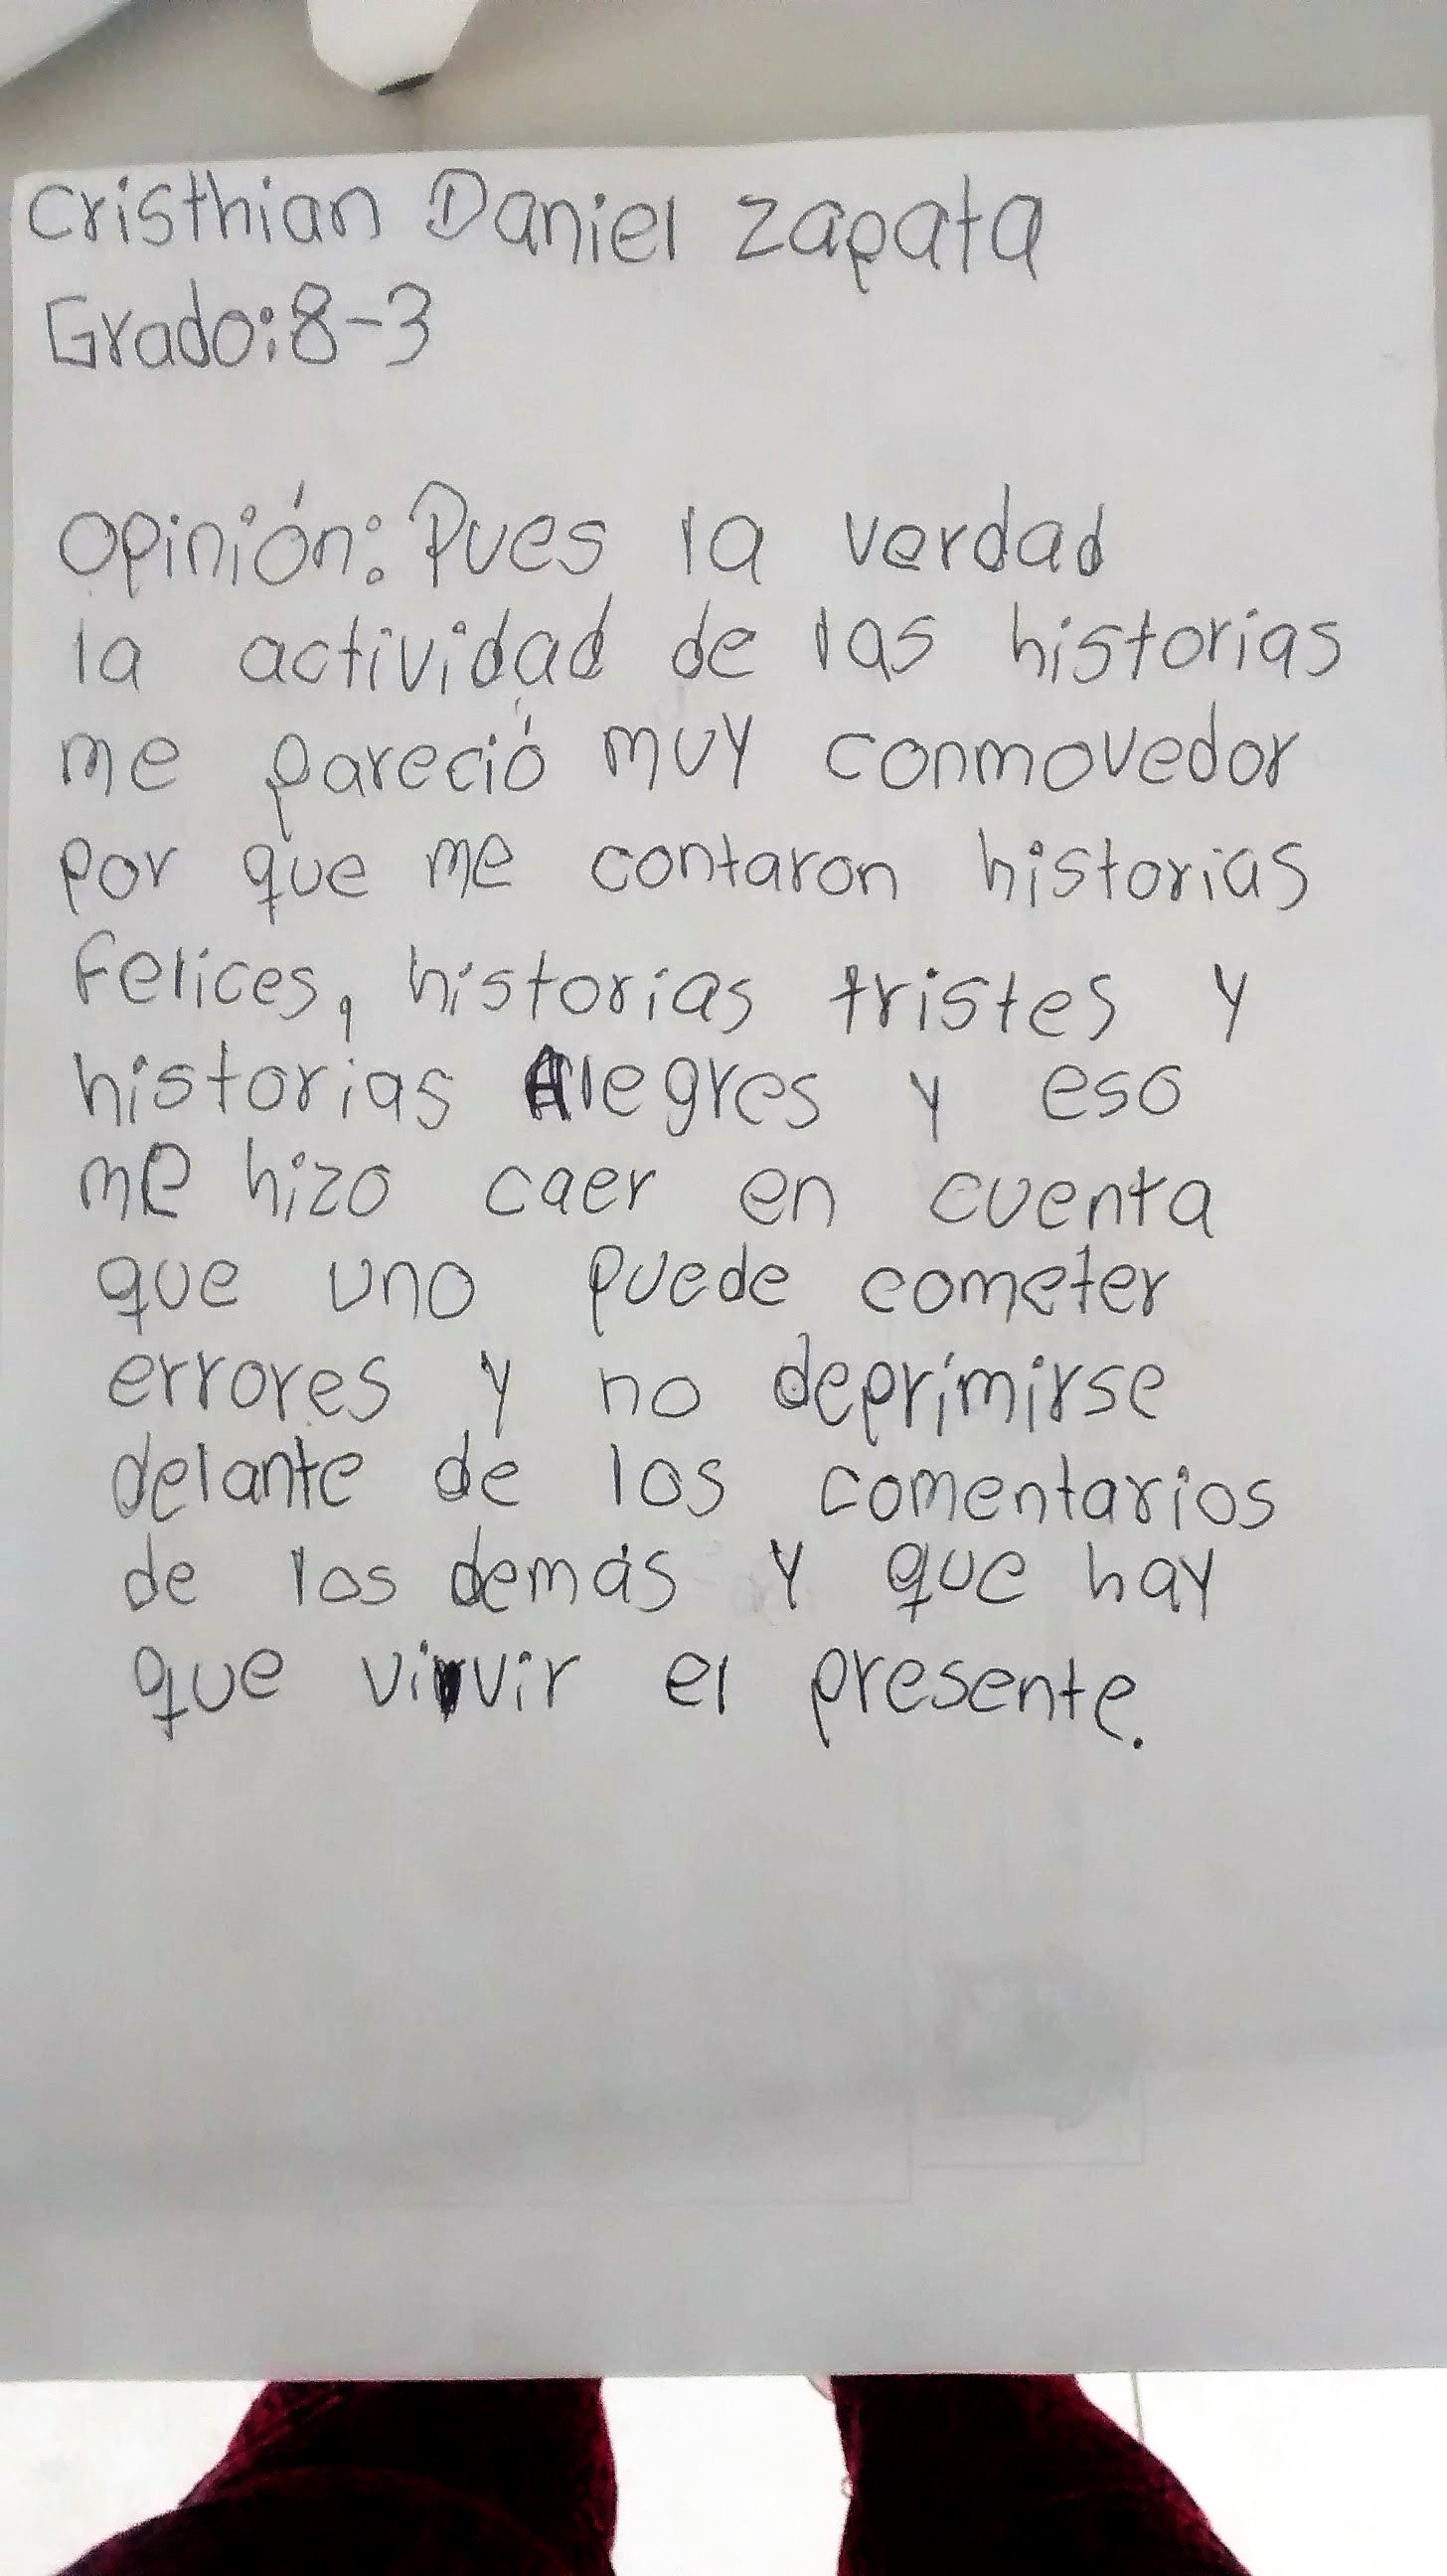 Cristhian Daniel Zapata
Grado:8-3
Opinión: Pues la verdad
la actividad de las historias
me pareció muy conmovedor
por que me contaron historias
felices, historias tristes y
historias Alegres y eso
me hizo caer en cuenta
que uno puede cometer
errores y no deprimirse
delante de los comentarios
de los demás y que hay
que vivir el presente.